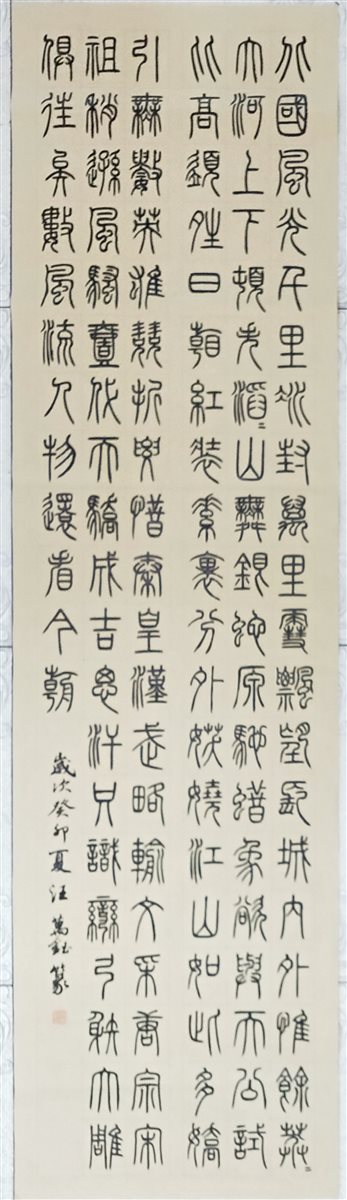 北國風光千里冰封萬里雪飄望長城內外惟餘莽〻
大河上下頓失滔〻山舞銀蛇原馳蠟象欲與天公試
比高須晴日看紅裝素裹分外妖嬈江山如此多嬌
引無數英雄競折腰惜秦皇漢武略輸文采唐宗宋
祖稍遜風騷壹代天驕成吉思汗只識彎弓射大雕
俱往矣數風流人物還看今朝
歲次癸卯夏汪萬鈺篆